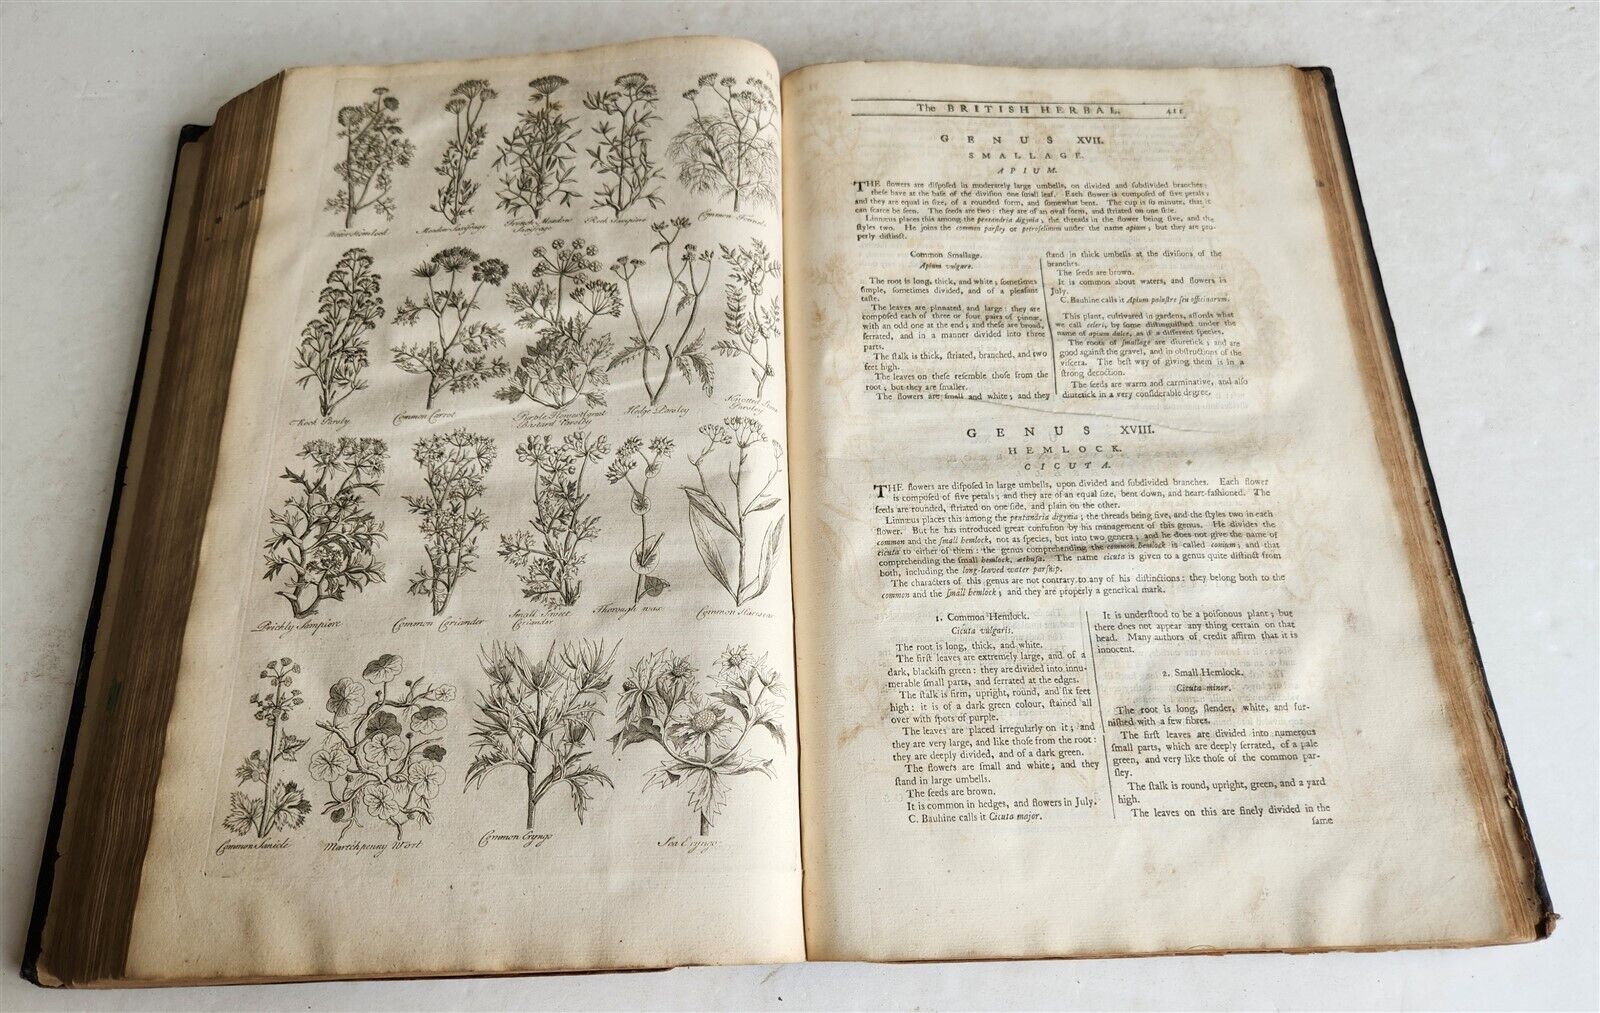 Meadow Saxifrage
French Meadow
Saxifrage
Rock Sampiere
Common Fennel
Rock Parsly
Common Carrot
Purple
Bastard Parsley
Hedge Parsley
Knotted
Parsley
Prickly Sampiere
Common Coriander
Small Sweet
Coriander
Thorough wax
Common
Common Sanicle
Marshpenny Wort
Common Eryngo
Sea Eryngo
The BRITISH HERBAL. 411
GENUS XVII.
SMALLAGE.
APIUM.
THE flowers are difpofed in moderately large umbells, on divided and fubdivided branches;
thefe have at the bafe of the divifion one fmall leaf. Each flower is compofed of five petals;
and they are equal in fize, of a rounded form, and fomewhat bent. The cup is fo minute, that it
can fcarce be feen. The feeds are two: they are of an oval form, and ftriated on one fide.
Linnæus places this among the pentandria digynia; the threads in the flower being five, and the
ftyles two. He joins the common parfley or petrofelinum under the name apium; but they are pro-
perly diftinct.
Common Smallage.
Apium vulgare.
The root is long, thick, and white; fometimes
fimple, fometimes divided, and of a pleafant
tafte.
The leaves are pinnated, and large: they are
compofed each of three or four pairs of pinnæ,
with an odd one at the end; and thefe are broad,
ferrated, and in a manner divided into three
parts.
The ftalk is thick, ftriated, branched, and two
feet high.
The leaves on thefe refemble thofe from the
root; but they are fmaller.
The flowers are fmall and white; and they
ftand in thick umbells at the divifions of the
branches.
The feeds are brown.
It is common about waters, and flowers in
July.
C. Bauhine calls it Apium paluftre feu officinarum.
This plant, cultivated in gardens, affords what
we call celeri, by fome diftinguifhed under the
name of apium dulce, as if a different fpecies.
The roots of fmallage are diuretick; and are
good againft the gravel, and in obftructions of the
vifcera. The beft way of giving them is in a
ftrong decoction.
The feeds are warm and carminative, and alfo
diuretick in a very confiderable degree.
GENUS XVIII.
HEMLOCK.
CICUTA.
THE flowers are difpofed in large umbells, upon divided and fubdivided branches. Each flower
is compofed of five petals; and they are of an equal fize, bent down, and heart-fafhioned. The
feeds are rounded, ftriated on one fide, and plain on the other.
Linnæus places this among the pentandria digynia; the threads being five, and the ftyles two in each
flower. But he has introduced great confufion by his management of this genus. He divides the
common and the fmall hemlock, not as fpecies, but into two genera; and he does not give the name of
cicuta to either of them: the genus comprehending the common hemlock is called conium; and that
comprehending the fmall hemlock, æthufa. The name cicuta is given to a genus quite diftinct from
both, including the long-leaved water parfnip.
The characters of this genus are not contrary to any of his diftinctions: they belong both to the
common and the fmall hemlock; and they are properly a generical mark.
1. Common Hemlock.
Cicuta vulgaris.
The root is long, thick, and white.
The firft leaves are extremely large, and of a
dark, blackifh green: they are divided into innu-
merable fmall parts, and ferrated at the edges.
The ftalk is firm, upright, round, and fix feet
high: it is of a dark green colour, ftained all
over with fpots of purple.
The leaves are placed irregularly on it; and
they are very large, and like thofe from the root:
they are deeply divided, and of a dark green.
The flowers are fmall and white; and they
ftand in large umbells.
The feeds are brown.
It is common in hedges, and flowers in July.
C. Bauhine calls it Cicuta major.
It is underftood to be a poifonous plant; but
there does not appear any thing certain on that
head. Many authors of credit affirm that it is
innocent.
2. Small Hemlock.
Cicuta minor.
The root is long, flender, white, and fur-
nifhed with a few fibres.
The firft leaves are divided into numerous
fmall parts, which are deeply ferrated, of a pale
green, and very like thofe of the common par-
fley.
The ftalk is round, upright, green, and a yard
high.
The leaves on this are finely divided in the
fame